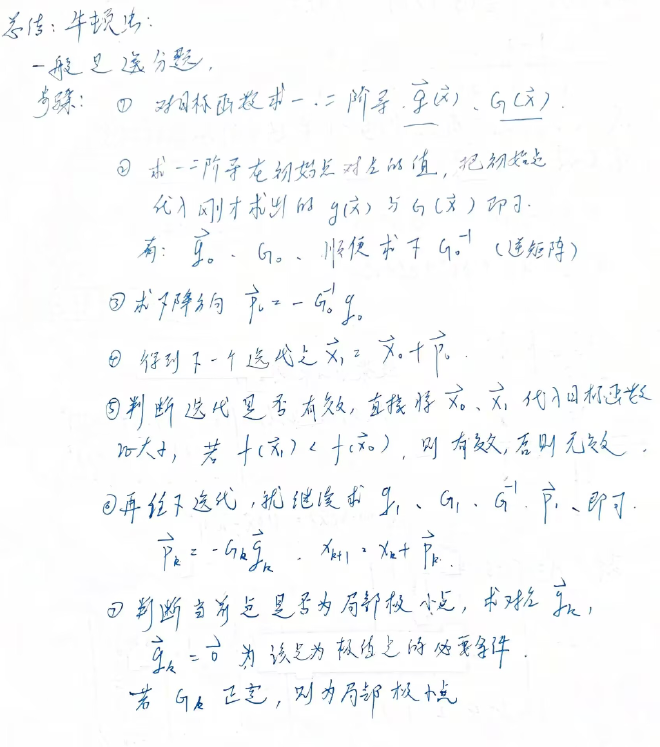 总结：牛顿法：
一般是送分题，
步骤：① 对目标函数求一、二阶导 g⃗(x⃗)、G(x⃗)．
② 求一二阶导在初始点对应的值，把初始点
代入刚才求出的 g(x⃗) 与 G(x⃗) 即可．
有：g⃗₀、G₀、顺便求下 G₀⁻¹（逆矩阵）
③ 求下降方向 p⃗₀ = - G₀⁻¹ g₀
④ 得到下一个迭代点 x⃗₁ = x⃗₀ + p⃗₀．
⑤ 判断迭代是否有效，直接将 x⃗₀、x⃗₁ 代入目标函数
比大小，若 f(x⃗₁) < f(x⃗₀)，则有效，否则无效．
⑥ 再往下迭代，就继续求 g₁、G₁、G⁻¹、p⃗₁、即可．
p⃗ₖ = -Gₖ g⃗ₖ．xₖ₊₁ = xₖ + p⃗ₖ．
⑦ 判断当前点是否为局部极小点，求对应 g⃗ₖ，
g⃗ₖ = 0⃗ 为该点为极值点的必要条件．
若 Gₖ 正定，则为局部极小点